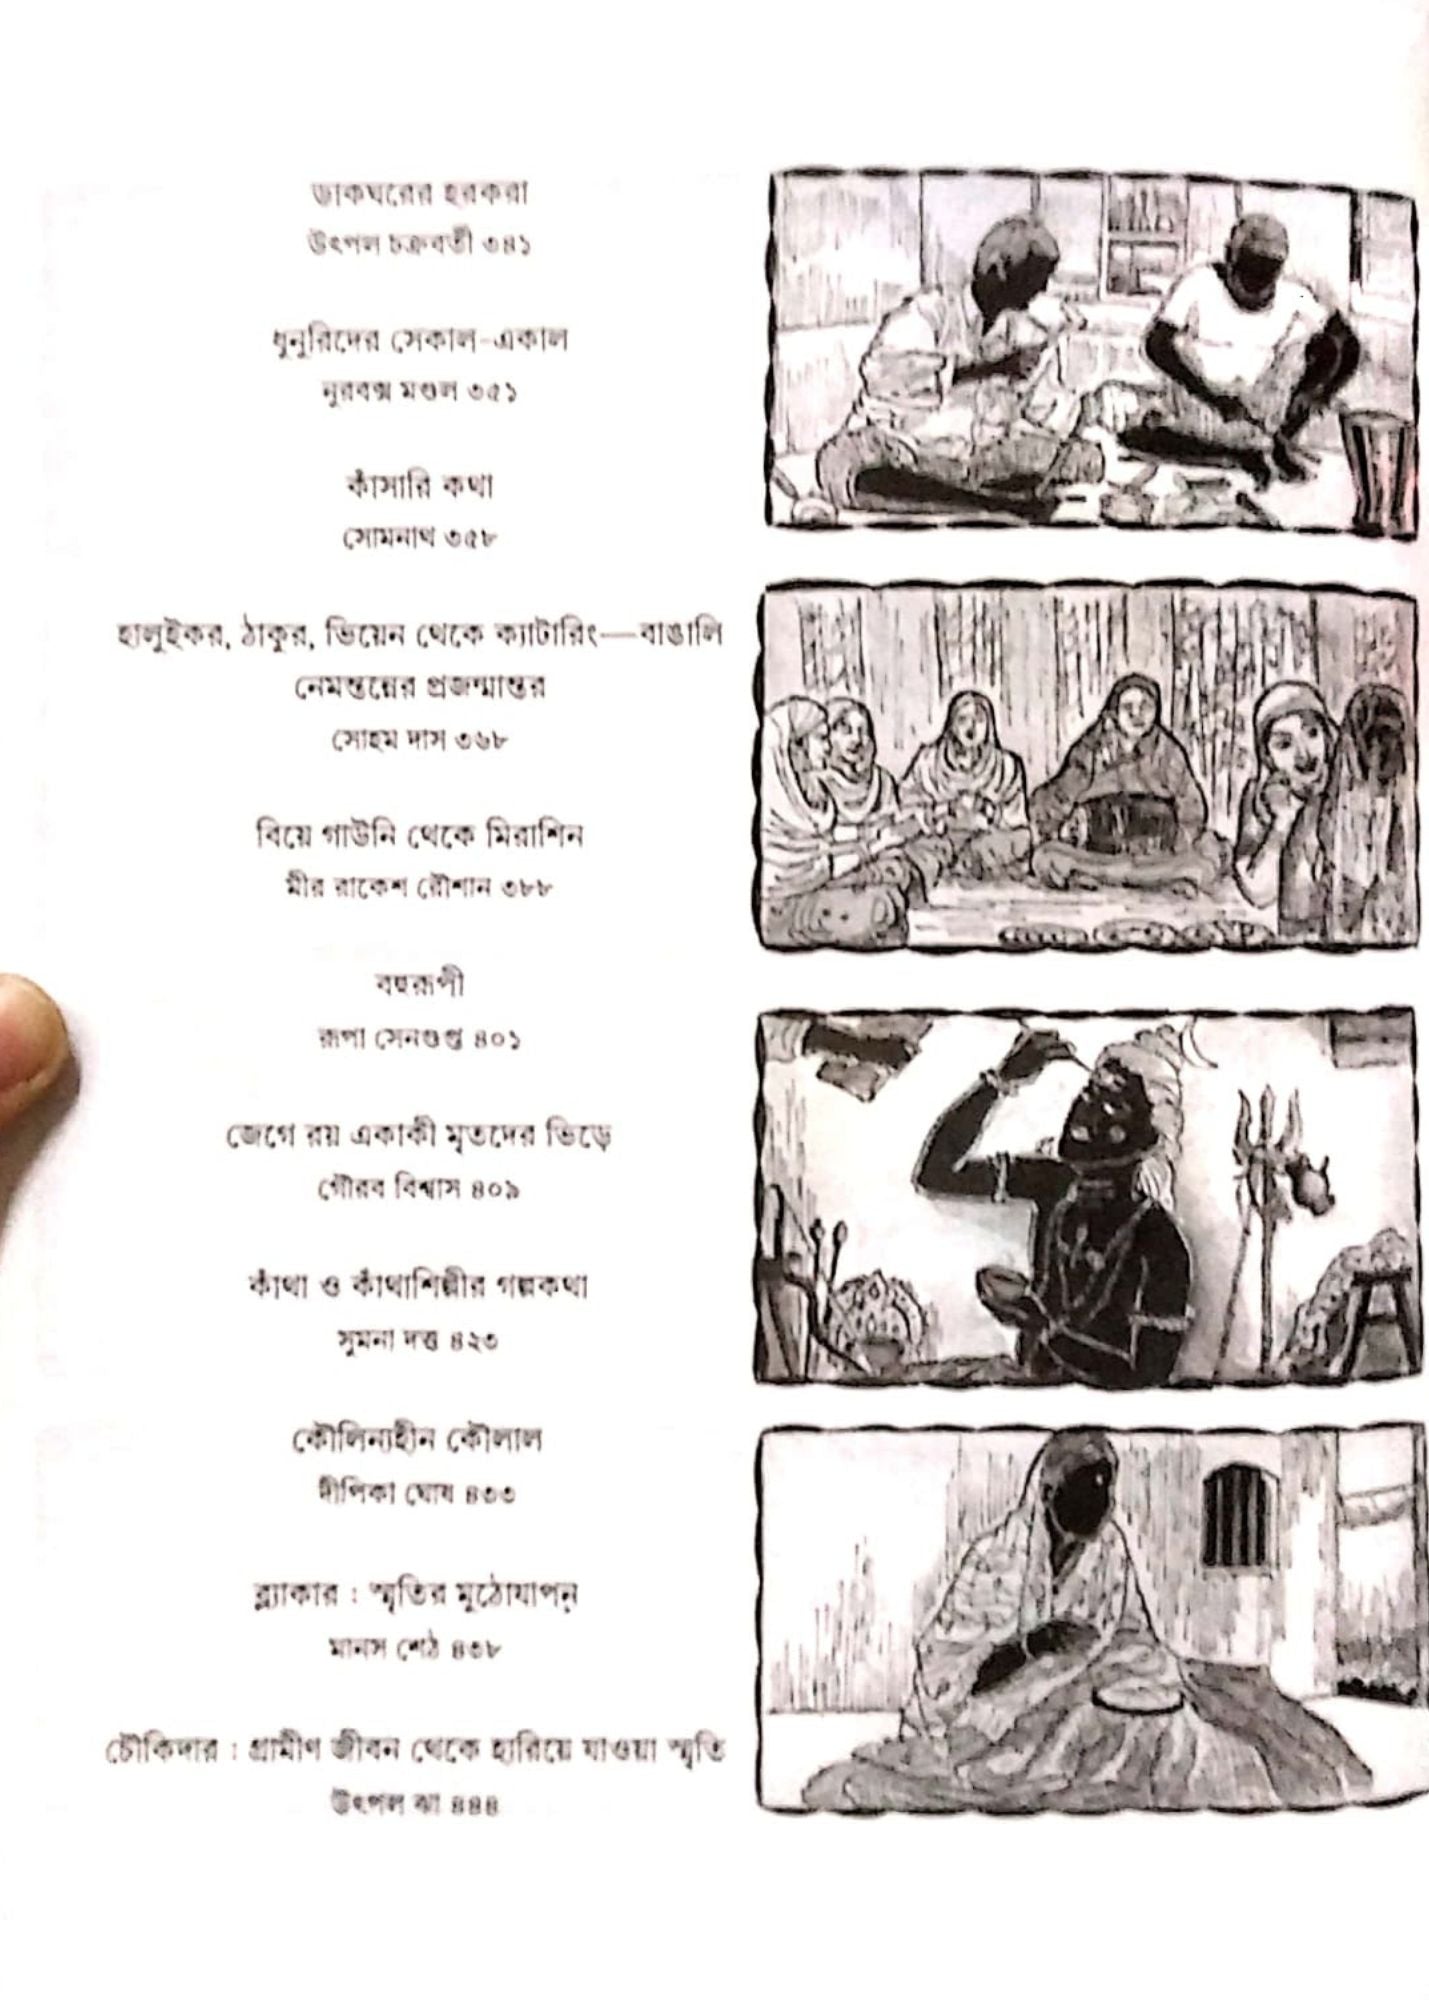 ডাকঘরের হরকরা
উৎপল চক্রবর্তী ৩৪১
ধুনুরিদের সেকাল-একাল
নুরবক্স মণ্ডল ৩৫১
কাঁসারি কথা
সোমনাথ ৩৫৮
হালুইকর, ঠাকুর, ভিয়েন থেকে ক্যাটারিং—বাঙালি
নেমন্তন্নের প্রজন্মান্তর
সোহম দাস ৩৬৮
বিয়ে গাউনি থেকে মিরাশিন
মীর রাকেশ রৌশান ৩৮৮
বহুরূপী
রূপা সেনগুপ্ত ৪০১
জেগে রয় একাকী মৃতদের ভিড়ে
গৌরব বিশ্বাস ৪০৯
কাঁথা ও কাঁথাশিল্পীর গল্পকথা
সুমনা দত্ত ৪২৩
কৌলিন্যহীন কৌলাল
দীপিকা ঘোষ ৪৩৩
ব্ল্যাকার : স্মৃতির মুঠোযাপন
মানস শেঠ ৪৩৮
চৌকিদার : গ্রামীণ জীবন থেকে হারিয়ে যাওয়া স্মৃতি
উৎপল ঝা ৪৪৪